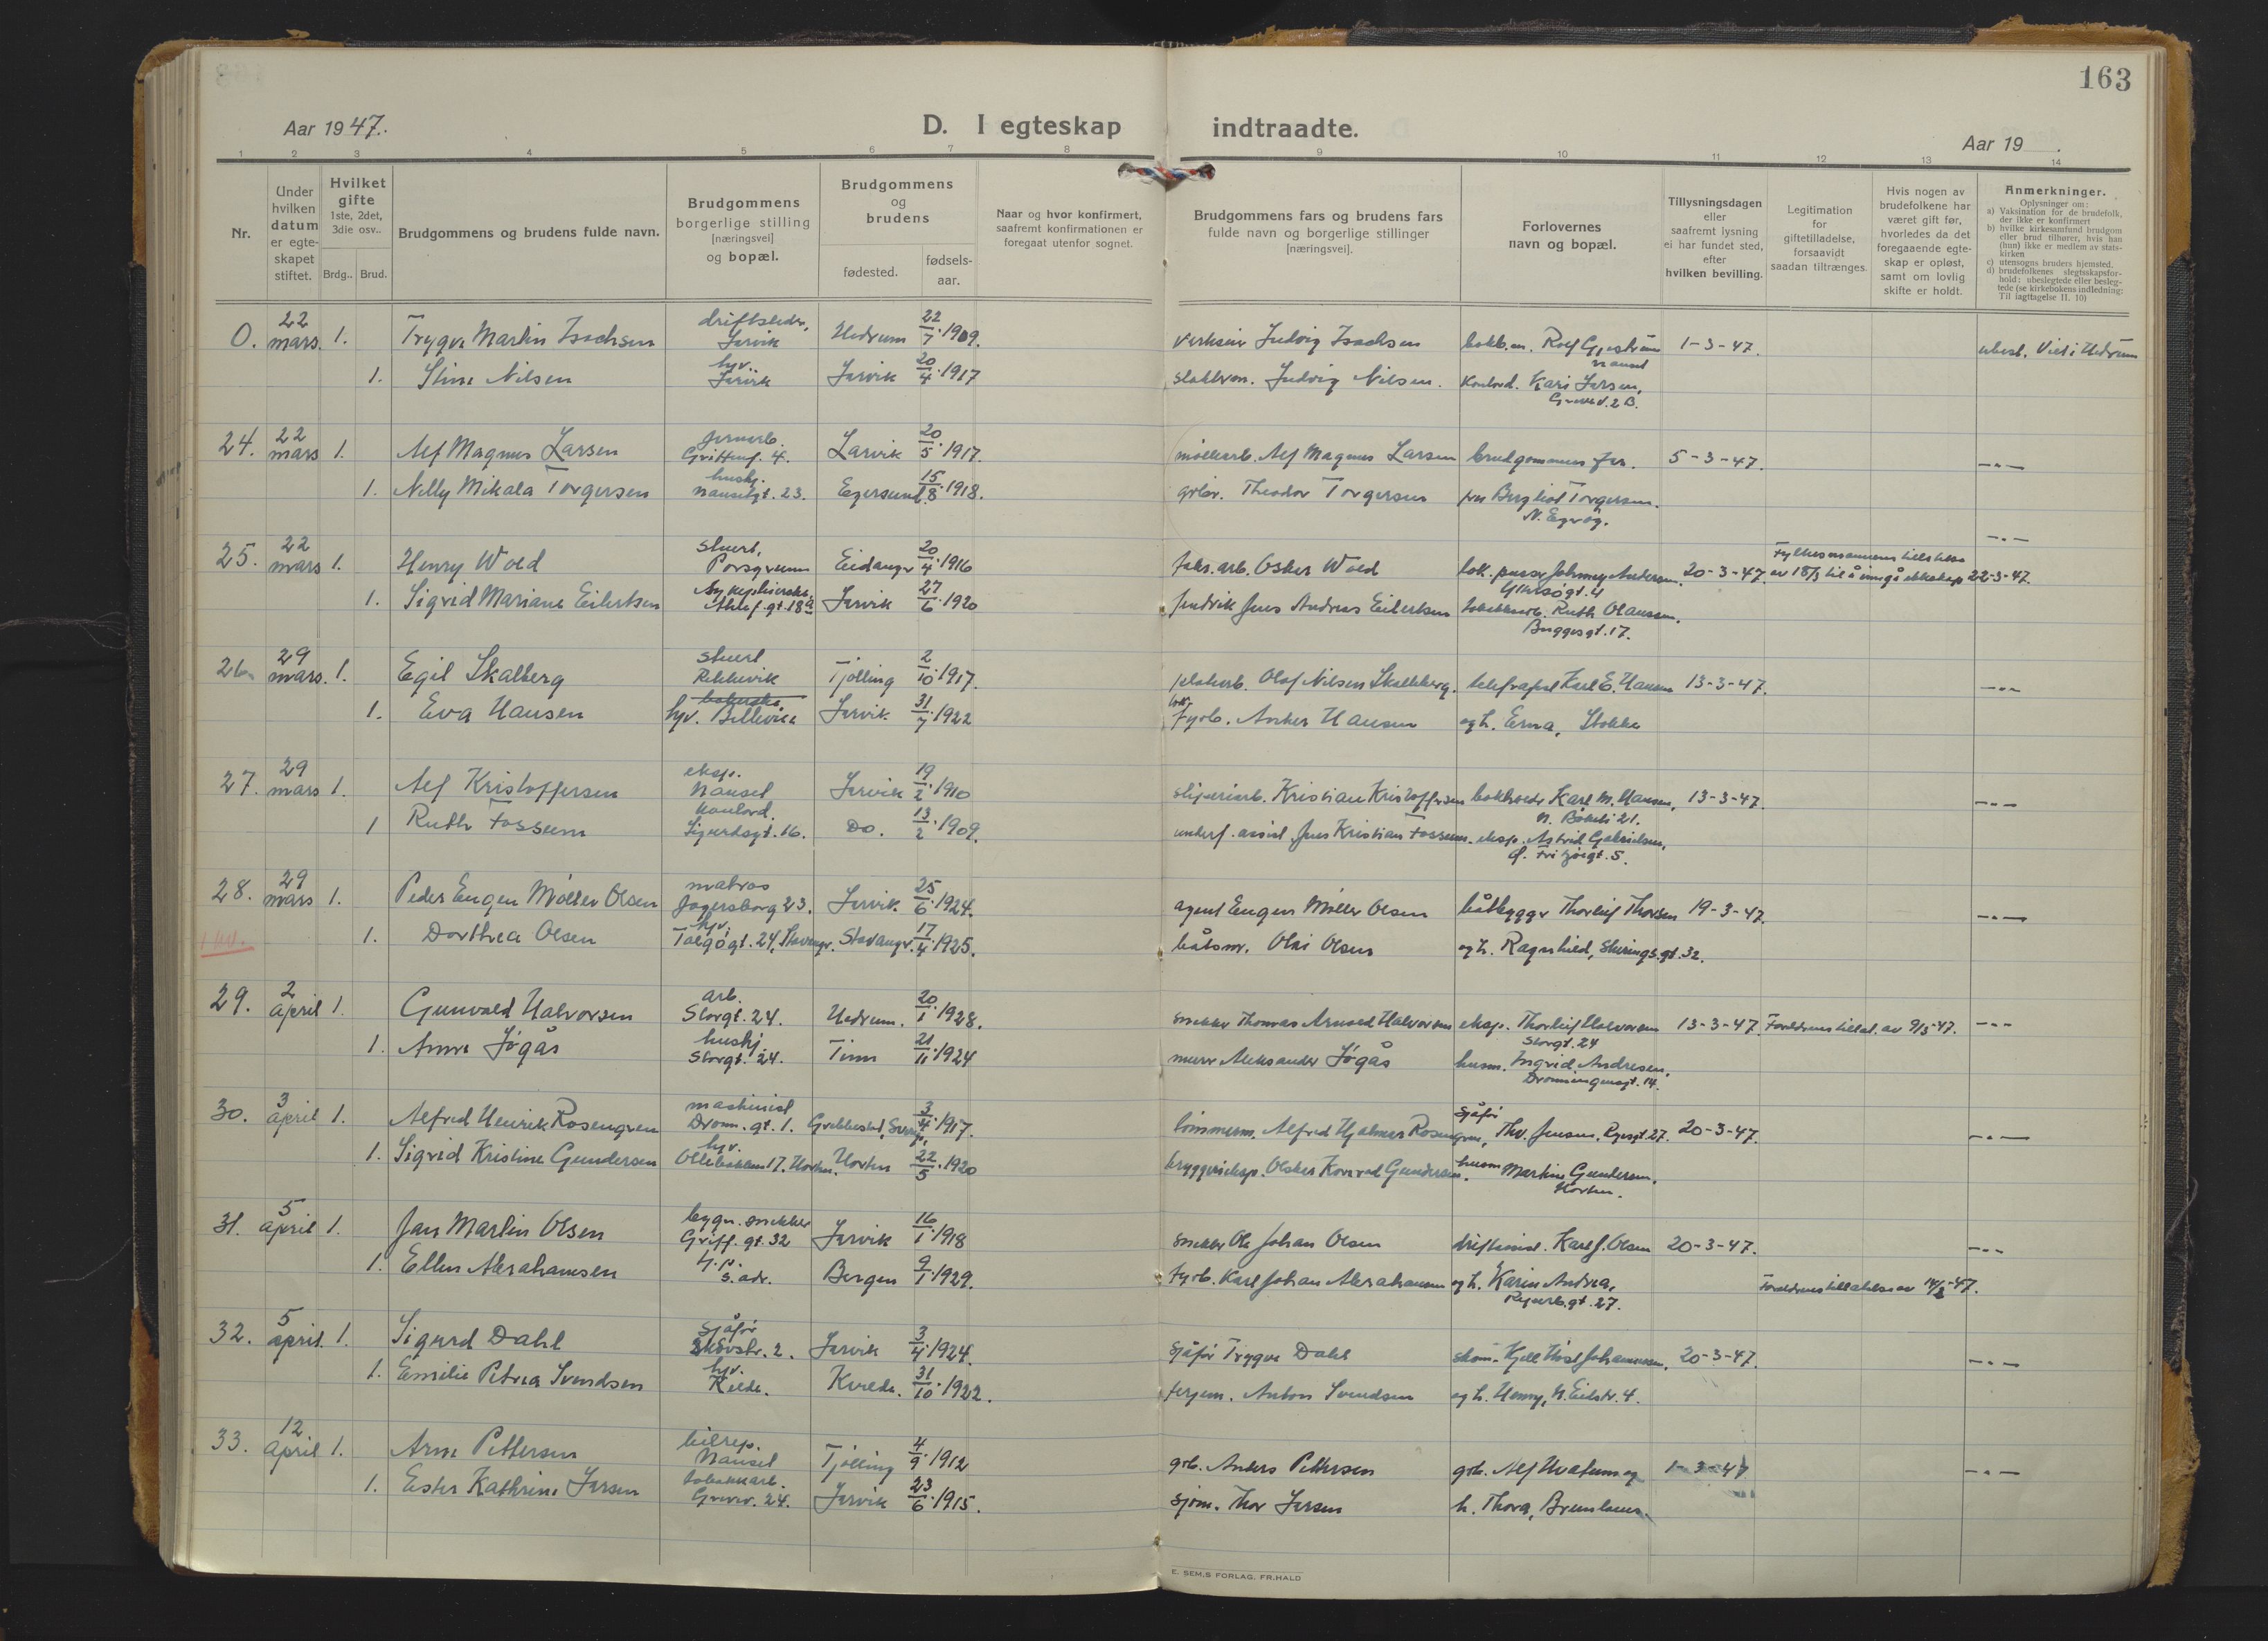 163
Aar 1947.
D. I egteskap indtraadte.
Aar 19 .
1 2 3 4 5 6 7 8 9 10 11 12 13 14
Nr.
Under hvilken datum er egteskapet stiftet.
Hvilket gifte 1ste, 2det, 3die osv..
Brdg.. Brud.
Brudgommens og brudens fulde navn.
Brudgommens borgerlige stilling [næringsvei] og bopæl.
Brudgommens og brudens
fødested.
fødsels-aar.
Naar og hvor konfirmert, saafremt konfirmationen er foregaat utenfor sognet.
Brudgommens fars og brudens fars fulde navn og borgerlige stillinger [næringsvei].
Forlovernes navn og bopæl.
Tillysningsdagen eller saafremt lysning ei har fundet sted, efter hvilken bevilling.
Legitimation for giftetilladelse, forsaavidt saadan tiltrænges.
Hvis nogen av brudefolkene har været gift før, hvorledes da det foregaaende egteskap er opløst, samt om lovlig skifte er holdt.
Anmerkninger.
Oplysninger om:
a) Vaksination for de brudefolk, der ikke er konfirmert
b) hvilke kirkesamfund brudgom eller brud tilhører, hvis han (hun) ikke er medlem av statskirken
c) utensogns bruders hjemsted.
d) brudefolkenes slegtsskapsforhold: ubeslegtede eller beslegtede (se kirkebokens indledning: Til iagttagelse II. 10)
0. 22 mars. 1. Trygve Martin Isachsen driftsleder, Larvik Hedrum 22/7.1909. Ludvig Isachsen bokb.m. Rolf Nanset 1-3-47. ubesl. Viet i Hedrum
1. Stine Nilsen hv. Larvik Larvik 20/4.1917 Ludvig Nilsen. Kontord. Kari Larsen, 2 B.
24. 22 mars 1. Alf Magnus Larsen jernarb. Griffenf. 4. Larvik 20/5.1917. møllearb. Alf Magnus Larsen brudgommens far. 5-3-47. -"-
1. Nelly Mikala Torgersen hushj. Nansetgt. 23. Egersund 15/8.1918. grbr. Theodor Torgersen fru Bergliot Torgersen. N. Egvåg.
25. 22 mars 1. Henry Wold stuert, Porsgrunn Eidanger 20/4.1916 fabr. arb. Oskar Wold lok. pusser Johnny Andersen. 20-3-47. Fylkesmannens tillatelse av 18/3 til å inngå ekteskap 22-3-47. -"-
1. Sigrid Mariane Eilertsen Sykepleierske, gt. 18a Larvik 27/6.1920 Jens Andreas Eilertsen tobakkarb. Ruth Olaussen. Bugges gt. 17.
26. 29 mars. 1. Egil Skalberg stuert Rekkevik Tjølling 2/10.1917. Olaf Nilsen Skalleberg. telefrafist Karl E. Hansen 13-3-47. -"-
1. Eva Hansen hv. Larvik. 31/7.1922 fyrb. Anker Hansen og h. Erna, Stokke
27. 29 mars 1. Alf Kristoffersen eksp. Nanset Larvik 19/2.1910 sliperiarb. Kristian Kristoffersen bokholder Karl M. Hansen, N. Bøkeli 21. 13-3-47. -"-
1 Ruth Fossum kontord. Sigurdsgt. 16. Do. 13/2.1909. underf. assist Jens Kristian Fossum. eksp. Astrid Gabrielsen, Ø. Fritzøegt. 5.
28. 29 mars 1. Peder Eugen Møller Olsen matros Jegersborg 23. Larvik. 25/6.1924. agent Eugen Møller Olsen båtbygger Thorleif Thorsen 19-3-47. -"-
1. Dorthea Olsen hv. Talgøgt. 24, Stavanger. Stavanger. 17/4.1925. båtsm. Olai Olsen og h. Ragnhild, gt. 32.
29. 2 april 1. Gunvald Halvorsen arb. Storgt. 24. Hedrum. 20/1.1928. snekker Thomas Arnold Halvorsen eksp. Thorleif Halvorsen Storgt. 24 13-3-47. Foreldrenes tillat. av 9/3-47. -"-
1. Anne Jøgås hushj. Storgt. 24. Tinn 21/11.1924 murer Aleksander Jøgås husm. Ingrid Andresen, Dronningensgt. 14.
30. 3 april 1. Alfred Henrik Rosengren maskinist Dronn. gt. 1. Grebbestad, Sverige, 3/4.1917. tømmerm. Alfred Hjalmar Rosengren, sjåfør Thv. Jensen, 27. 20-3-47. -"-
1. Sigrid Kristine Gundersen hv. Ollebakken 17. Horten. Horten 22/5.1920 bryggerieksp. Oskar Konrad Gundersen. husm Martine Gundersen, Horten.
31. 5 april 1. Jan Martin Olsen bygn. snekker Griff. gt. 32 Larvik 16/1.1918 snekker Ole Johan Olsen driftsassist. Karl J. Olsen 20-3-47. -"-
1. Ellen Abrahamsen hv. s. adr. Bergen 9/1.1929. fyrb. Karl Johan Abrahamsen og h. Karin Andrea, gt. 27. Foreldrenes tillatelse av
32. 5 april. 1. Sigurd Dahl sjåfør 2. Larvik 3/4.1924. sjåfør Trygve Dahl skom. Kjell Høst Johannessen, 20-3-47. -"-
1. Emilie Petrea Svendsen hv. Kvelde. 31/10.1922. Anton Svendsen og h. Henny, 4.
33. 12 april 1. Arne Pettersen bilrep. Nanset Tjølling 4/9.1912 grb. Anders Pettersen grb. Alf Hvatum og 1-3-47 -"-
1. Ester Kathrine Larsen tobakkarb. 24. Larvik 23/6.1915. sjøm. Thor Larsen h. Thora, Brunlanes.
E. SEM,S FORLAG, FR.HALD